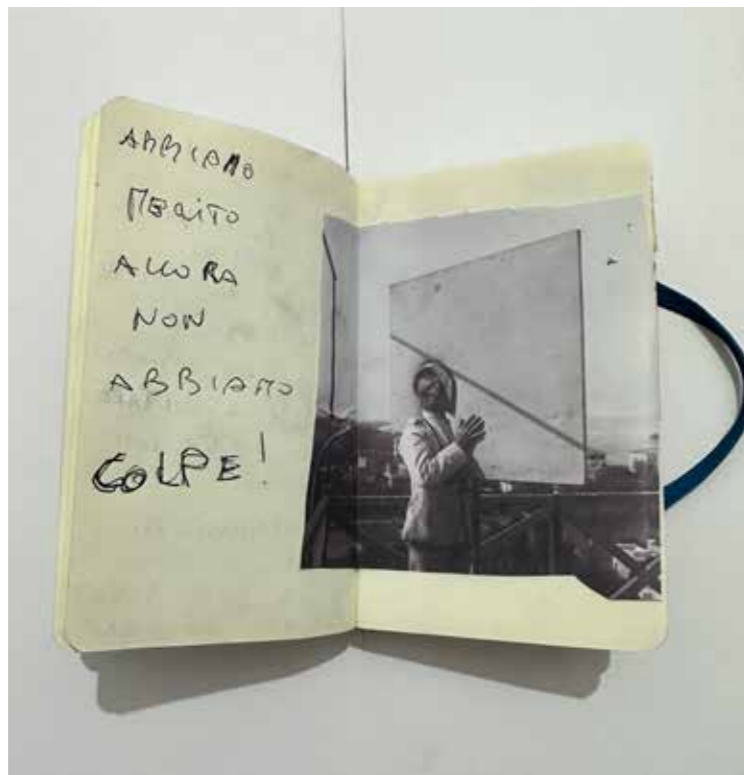 ABBIAMO
MERITO
ALLORA
NON
ABBIAMO
COLPE!